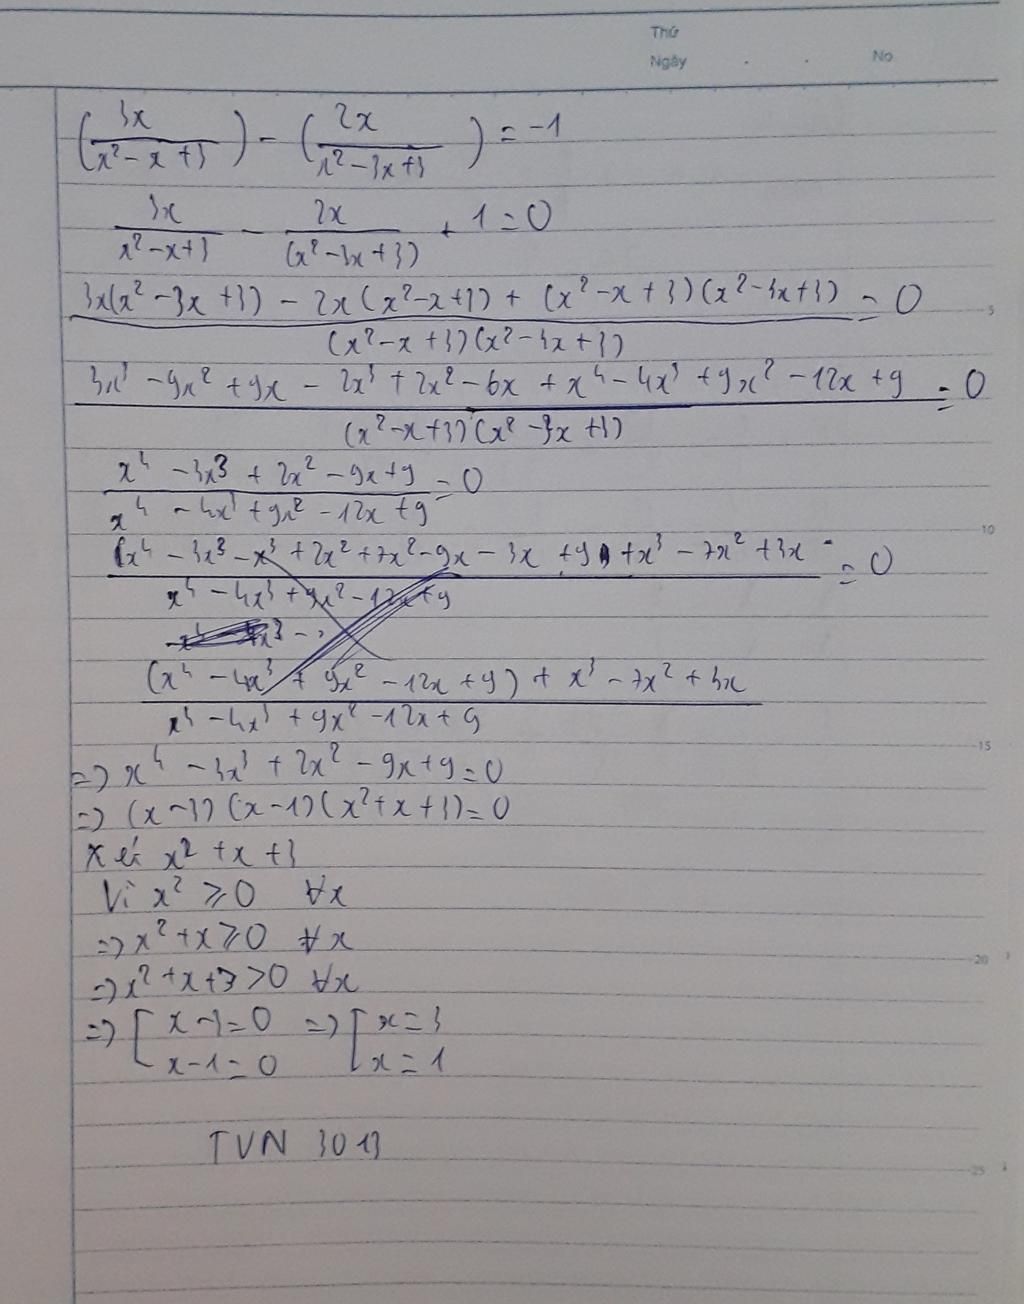 Thứ
Ngày . . No
(3x / (x² - x + 3)) - (2x / (x² - 3x + 3)) = -1
3x / (x² - x + 3) - 2x / (x² - 3x + 3) + 1 = 0
(3x(x² - 3x + 3) - 2x(x² - x + 3) + (x² - x + 3)(x² - 3x + 3)) / ((x² - x + 3)(x² - 3x + 3)) = 0
5
(3x³ - 9x² + 9x - 2x³ + 2x² - 6x + x⁴ - 4x³ + 9x² - 12x + 9) / ((x² - x + 3)(x² - 3x + 3)) = 0
(x⁴ - 3x³ + 2x² - 9x + 9) / (x⁴ - 4x³ + 9x² - 12x + 9) = 0
10
(x⁴ - 3x³ - x³ + 2x² + 7x² - 9x - 3x + 9 + x³ - 7x² + 3x) / (x⁴ - 4x³ + 9x² - 12x + 9) = 0
((x⁴ - 4x³ + 9x² - 12x + 9) + x³ - 7x² + 3x) / (x⁴ - 4x³ + 9x² - 12x + 9)
15
=> x⁴ - 3x³ + 2x² - 9x + 9 = 0
=> (x - 3)(x - 1)(x² + x + 3) = 0
Xét x² + x + 3
Vì x² ⩾ 0 ∀x
=> x² + x ⩾ 0 ∀x
20
=> x² + x + 3 > 0 ∀x
=> [ x - 3 = 0 => [ x = 3
x - 1 = 0 x = 1
TVN 3013
25